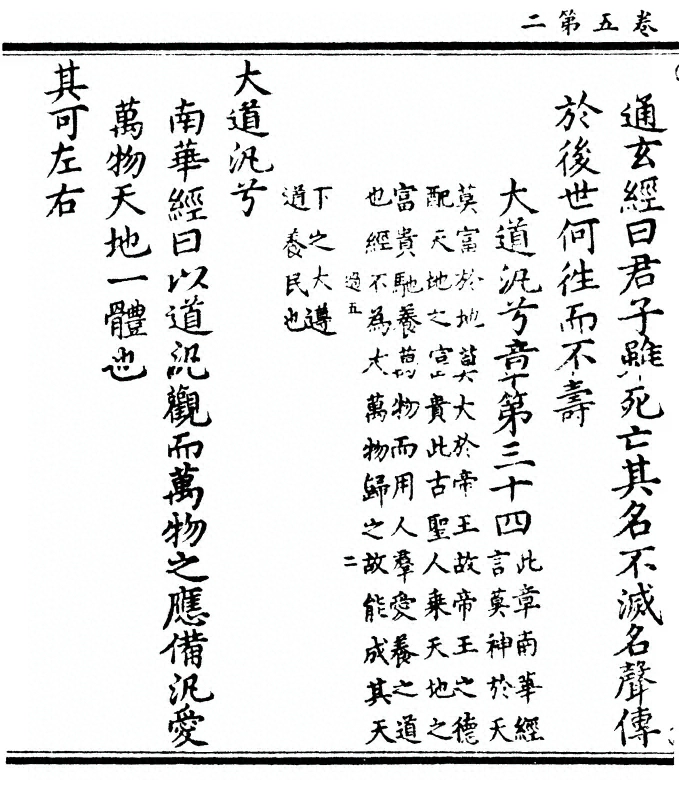 卷五第二
通玄經曰君子雖死亡其名不滅名聲傳
於後世何徃而不壽
大道汎兮章第三十四
此章南華經
言莫神於天
莫富於地莫大於帝王故帝王之德
配天地之富貴此古聖人乗天地之
富貴馳養萬物而用人羣愛養之道
也經不為大萬物歸之故能成其天
過五 二
下之大遵
道養民也
大道汎兮
南華經曰以道汎觀而萬物之應備汎愛
萬物天地一體也
其可左右